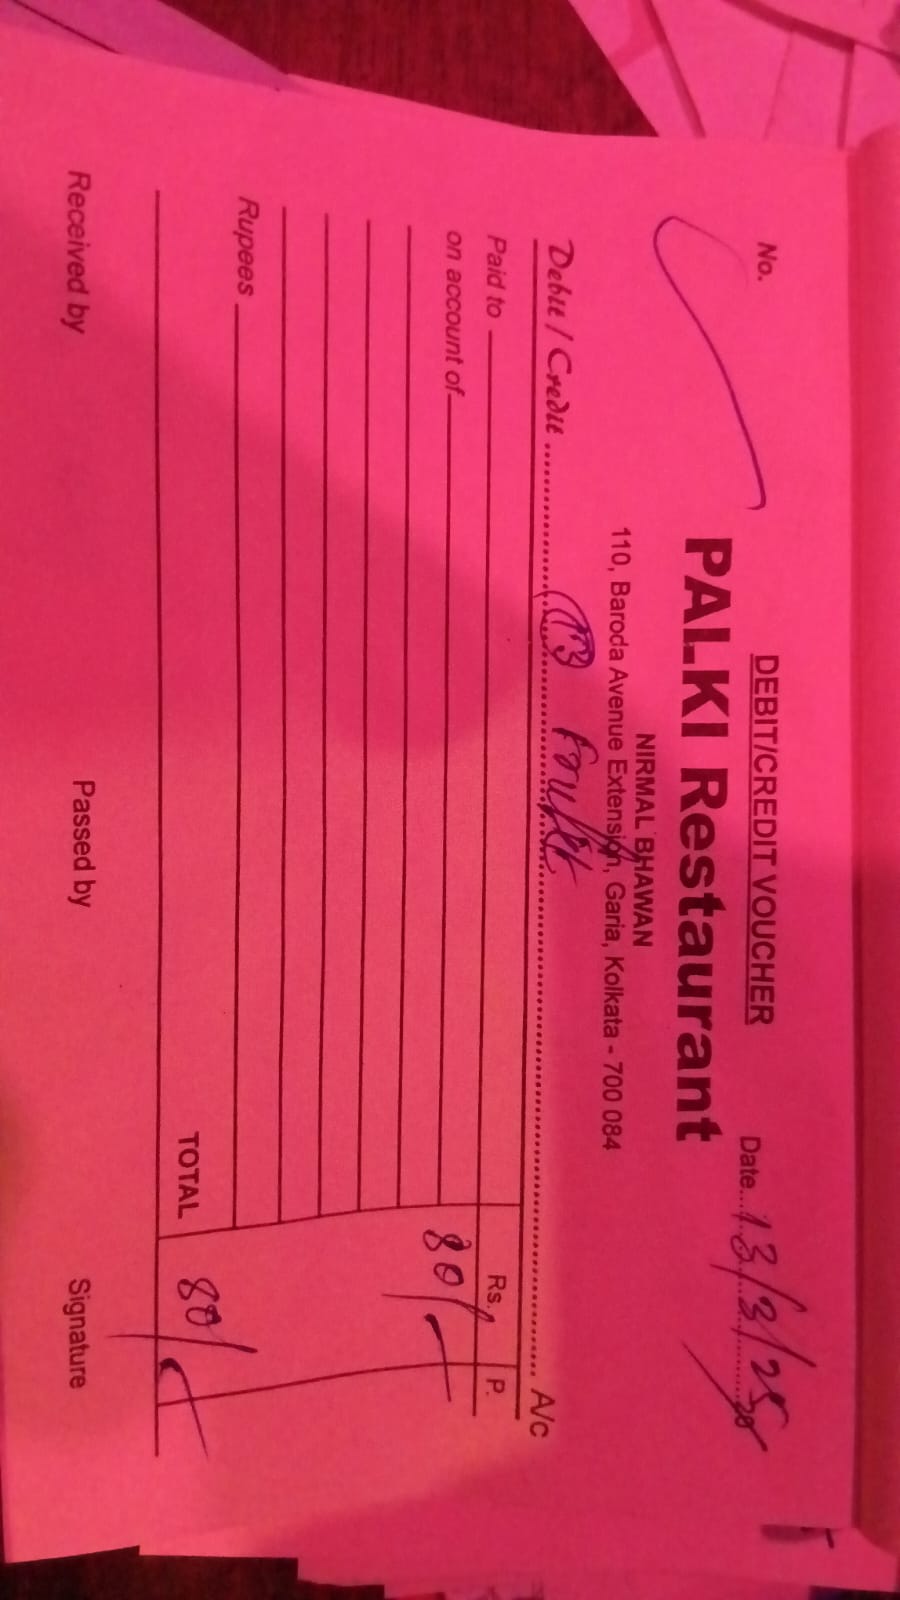 No.
DEBIT/CREDIT VOUCHER
Date 13/3/25
PALKI Restaurant
NIRMAL BHAWAN
110, Baroda Avenue Extension, Garia, Kolkata - 700 084
Debit / Credit A/c
Paid to Rs. P.
on account of 80/-
Rupees
TOTAL 80/-
Received by Passed by Signature